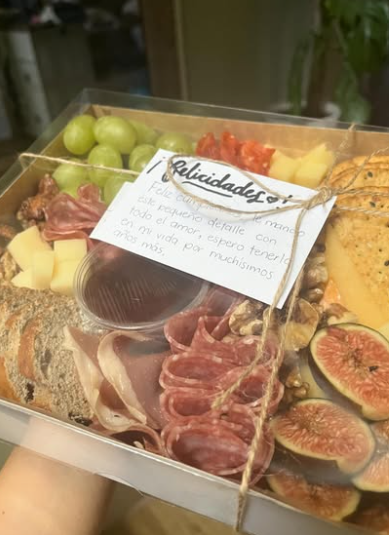 ¡Felicidades♥!
Feliz cumple le mando
este pequeño detalle con
todo el amor, espero tenerlo
en mi vida por muchísimos
años más.